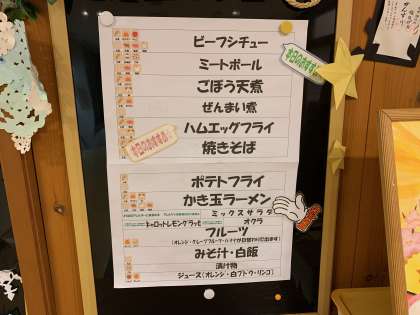 ビーフシチュー
ミートボール
今日のおすすめ
ごぼう天煮
ぜんまい煮
ハムエッグフライ
今日のおすすめ
焼きそば
ポテトフライ
かき玉ラーメン
ミックスサラダ
オクラ
キャロットレモングラッセ
フルーツ
みそ汁・白飯
漬け物
ジュース(オレンジ・白ブドウ・リンゴ)